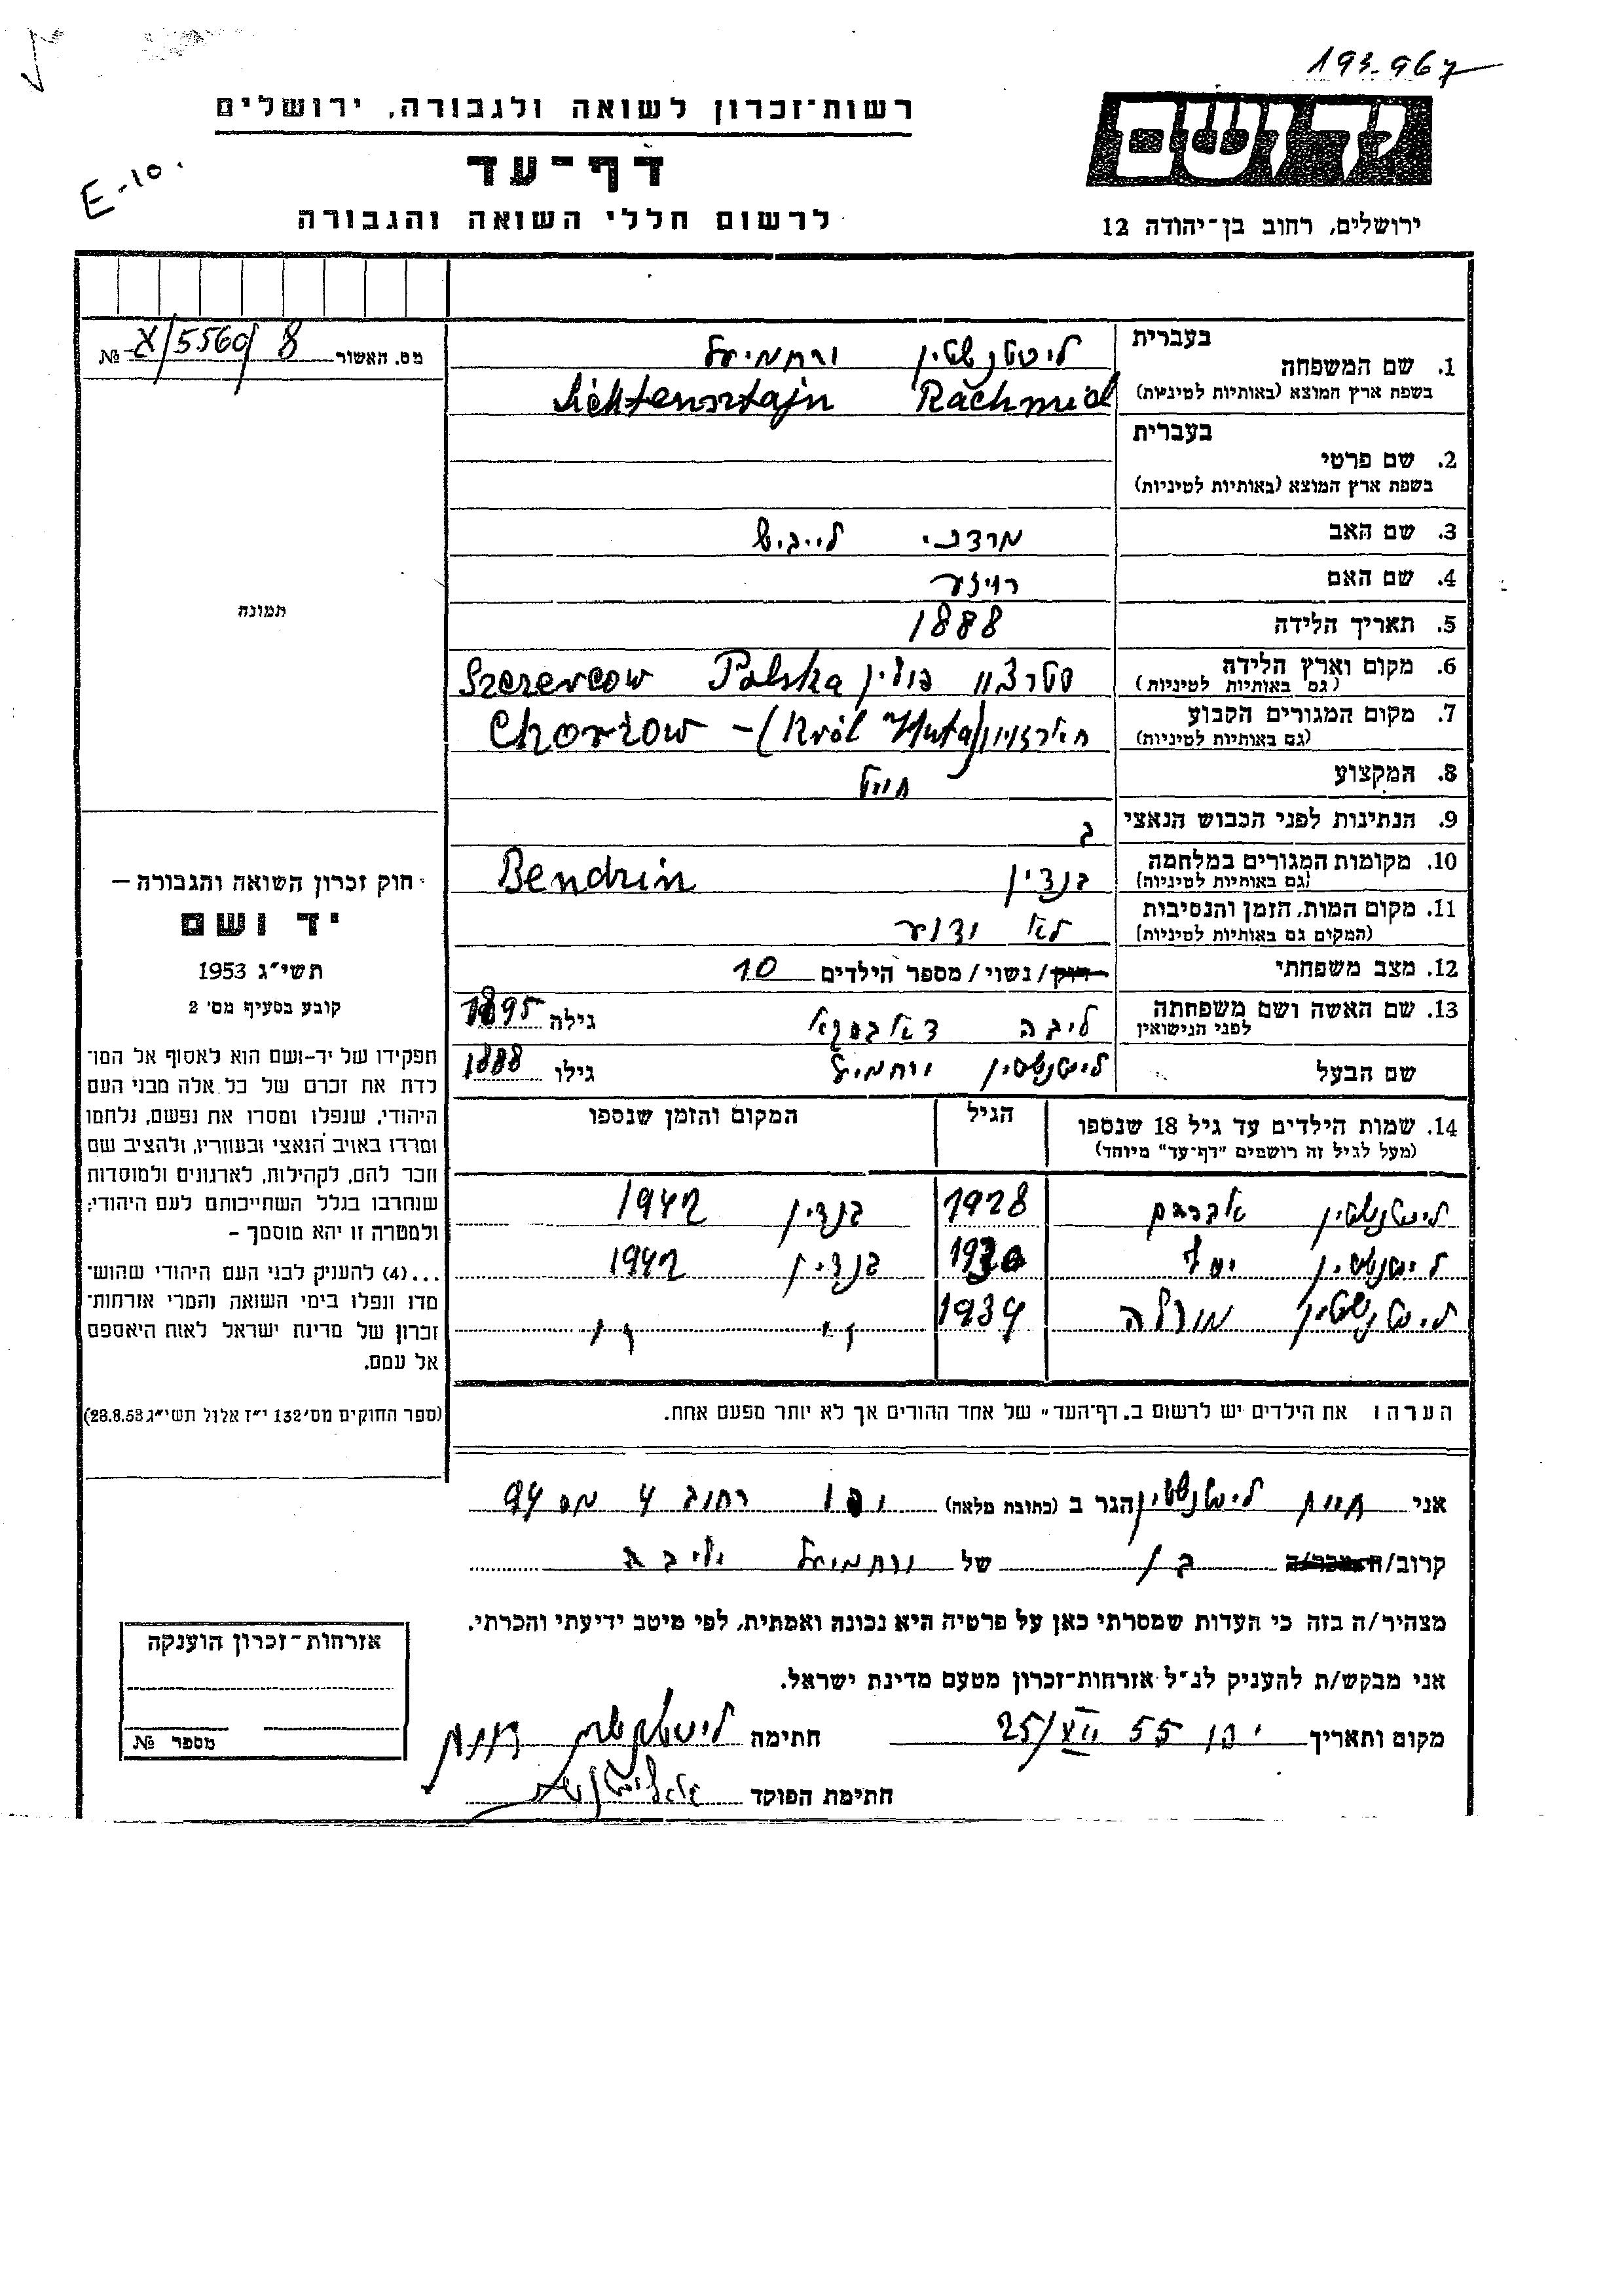 193.967
רשות־זכרון לשואה ולגבורה, ירושלים
יד ושם
דף־עד
E-10.
לרשום חללי השואה והגבורה
ירושלים, רחוב בן־יהודה 12
מס. האשור 8 /5560/א №
בעברית
1. שם המשפחה
ליכטנשטין ירחמיאל
בשפת ארץ המוצא (באותיות לטיניות)
Lichtensztajn Rachmiel
בעברית
2. שם פרטי
בשפת ארץ המוצא (באותיות לטיניות)
3. שם האב מרדכי לייביש
4. שם האם רויזע
5. תאריך הלידה 1888
6. מקום וארץ הלידה פולין Polska Szczercow
(גם באותיות לטיניות)
7. מקום המגורים הקבוע Chorzow - (Król Huta)
(גם באותיות לטיניות)
8. המקצוע חייט
9. הנתינות לפני הכבוש הנאצי
10. מקומות המגורים במלחמה בנדין Bendzin
(גם באותיות לטיניות)
11. מקום המות, הזמן והנסיבות לא ידוע
(המקום גם באותיות לטיניות)
12. מצב משפחתי רוק/נשוי/מספר הילדים 10
13. שם האשה ושם משפחתה ליבה גילה 1895
לפני הנישואין
שם הבעל ליכטנשטין ירחמיאל גילו 1888
14. שמות הילדים עד גיל 18 שנספו הגיל המקום והזמן שנספו
(מעל לגיל זה רושמים "דף־עד" מיוחד)
ליכטנשטין אברהם 1928 בנדין 1942
ליכטנשטין יוסף 1930 בנדין 1942
ליכטנשטין 1934 " "
הערה: את הילדים יש לרשום ב,דף־העד" של אחד ההורים אך לא יותר מפעם אחת.
אני חיים ליכטנשטין הגר ב (כתובת מלאה) רחוב 4 מס 94
קרוב/ה מכר/ה בן של ירחמיאל וליבה
מצהיר/ה בזה כי העדות שמסרתי כאן על פרטיה היא נכונה ואמתית, לפי מיטב ידיעתי והכרתי.
אני מבקש/ת להעניק לנ"ל אזרחות־זכרון מטעם מדינת ישראל.
מקום ותאריך 25/XII 55 חתימה ליכטנשטין חיים
חתימת הפוקד
תמונה
חוק זכרון השואה והגבורה —
יד ושם
תשי"ג 1953
קובע בסעיף מס' 2
תפקידו של יד-ושם הוא לאסוף אל המו־
לדת את זכרם של כל אלה מבני העם
היהודי, שנפלו ומסרו את נפשם, נלחמו
ומרדו באויב הנאצי ובעוזריו, ולהציב שם
וזכר להם, לקהילות, לארגונים ולמוסדות
שנחרבו בגלל השתייכותם לעם היהודי;
ולמטרה זו יהא מוסמך –
...(4) להעניק לבני העם היהודי שהוש־
מדו ונפלו בימי השואה והמרי אזרחות־
זכרון של מדינת ישראל לאות היאספם
אל עמם.
(ספר החוקים מס' 132 י"ז אלול תשי"ג 28.8.53)
אזרחות־זכרון הוענקה
מספר №